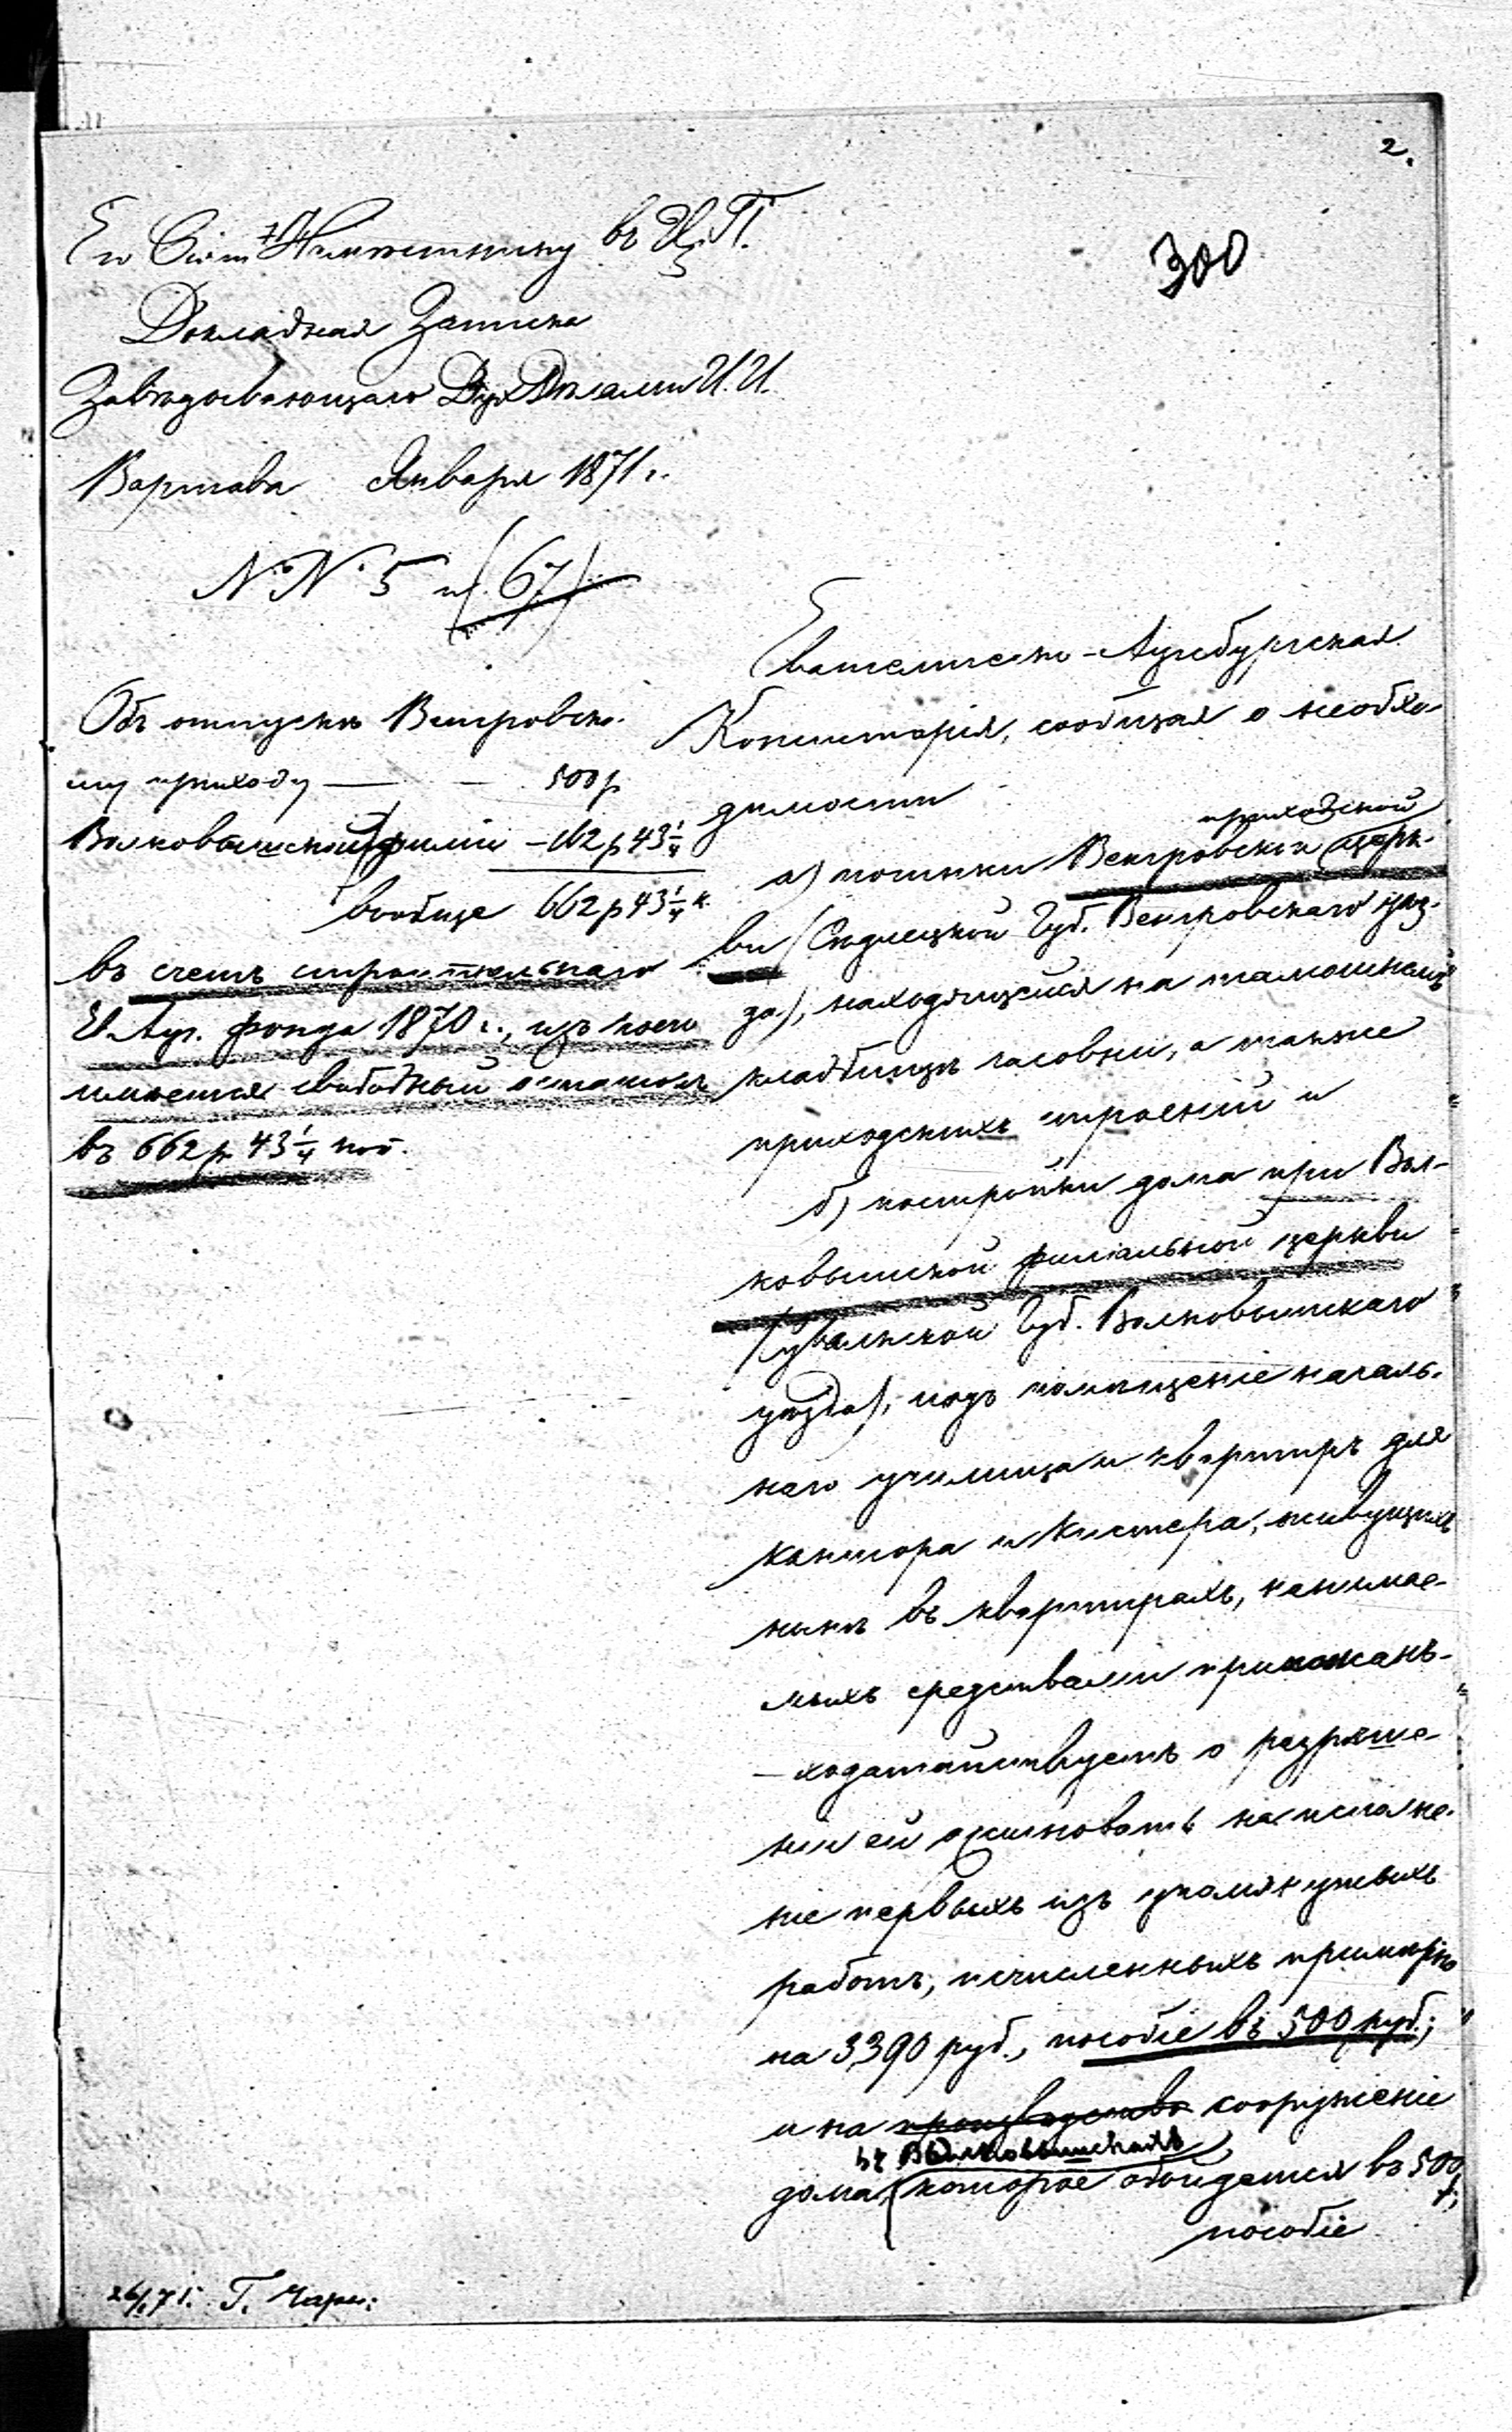 2.
300
Его Сіят. Намѣстнику въ Ц. П.
Докладная Записка
Завѣдывающаго Дух. Дѣлами И. И.
Варшава Января 1871 г.
№№ 5 и (67)
Объ отпускѣ Венгровско-
му приходу — — 500 р
Волковышской филіи — 162 р 43 1/4
вообще 662 р 43 1/4 к.
въ счетъ строительнаго
Ев. Ауг. фонда 1870 г., изъ коего
имѣется свободный остатокъ
въ 662 р. 43 1/4 коп.
Евангелическо-Аугсбургская
Консисторія, сообщая о необхо-
димости
приходской
а) починки Венгровской церк-
ви (Сѣдлецкой Губ. Венгровскаго уѣз-
да), находящейся на тамошнемъ
кладбищѣ часовни, а также
приходскихъ строеній и
б) постройки дома при Вол-
ковышской филіальной церкви
(Сувалкской Губ. Волковышскаго
уѣзда), подъ помѣщеніе началь-
наго училища и квартиръ для
кантора и кистера, живущихъ
нынѣ въ квартирахъ, нанимае-
мыхъ средствами прихожанъ-
— ходатайствуетъ о разрѣше-
ніи ей ассигновать на исполне-
ніе первыхъ изъ упомянутыхъ
работъ, исчисленныхъ примѣрно
на 3,390 руб., пособіе въ 500 руб.;
и на производство сооруженіе
въ Волковышкахъ
дома, которое обойдется въ 500
пособіе
26/I 71. Г.